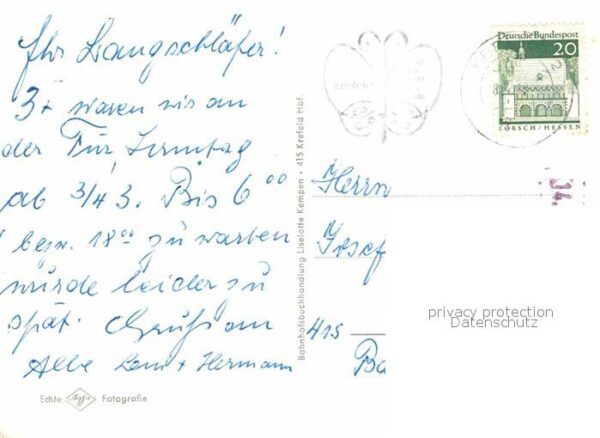 Ihr Langschläfer!
3x waren wir an
der Tür, Sonntag
ab 3/4 3. Bis 6⁰⁰
bezw. 18⁰⁰ zu warten
würde leider zu
spät. Gruß an
Alle Leni + Hermann
Echte Agfa Fotografie
Bahnhofsbuchhandlung Liselotte Kempen · 415 Krefeld Hbf.
Krefeld
Deutsche Bundespost
20
LORSCH / HESSEN
Herrn
Josef
415
privacy protection
Datenschutz